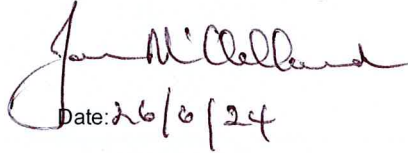 McClelland
Date: 26/6/24